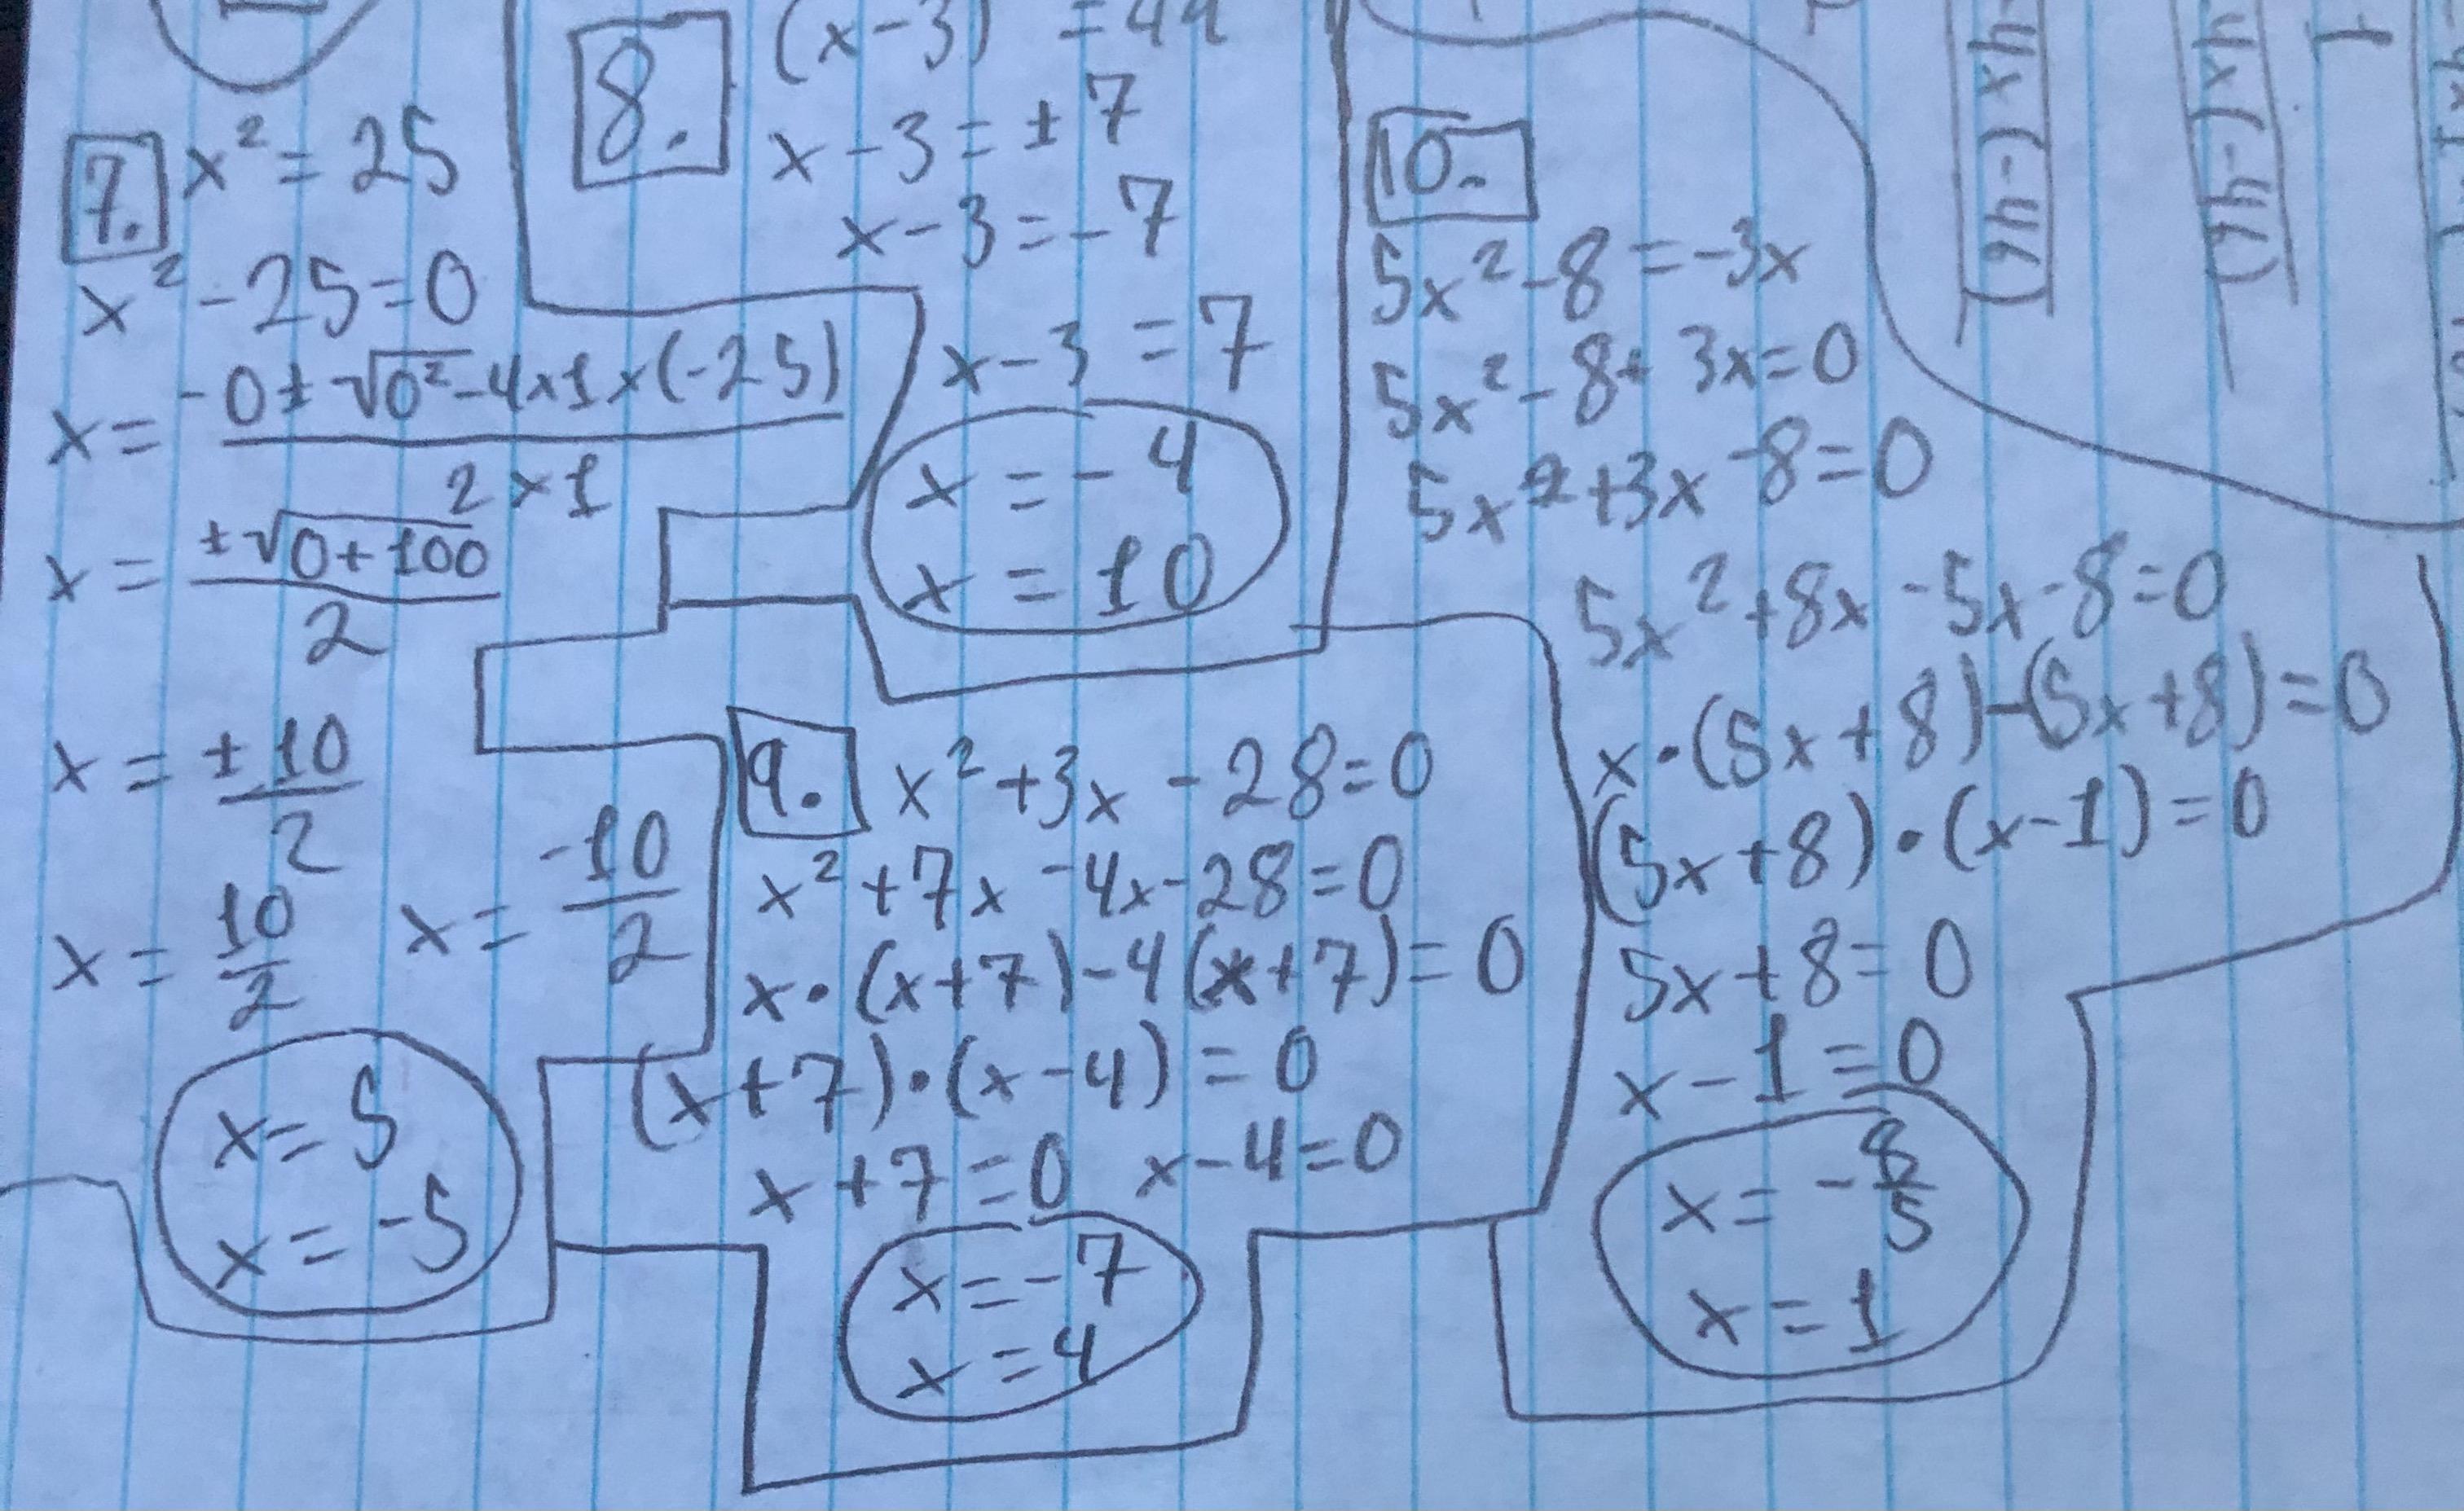 7. x² = 25
x² - 25 = 0
x = -0 ± √0² - 4 x 1 x (-25)
2 x 1
x = ± √0 + 100
2
x = ± 10
2
x = 10/2 x = -10/2
x = 5
x = -5
8. (x - 3) = 49
x - 3 = ± 7
x - 3 = - 7
x - 3 = 7
x = - 4
x = 10
9. x² + 3x - 28 = 0
x² + 7x - 4x - 28 = 0
x · (x + 7) - 4 (x + 7) = 0
(x + 7) · (x - 4) = 0
x + 7 = 0 x - 4 = 0
x = - 7
x = 4
10.
5x² - 8 = -3x
5x² - 8 + 3x = 0
5x² + 3x - 8 = 0
5x² + 8x - 5x - 8 = 0
x · (5x + 8) - (5x + 8) = 0
(5x + 8) · (x - 1) = 0
5x + 8 = 0
x - 1 = 0
x = - 8/5
x = 1